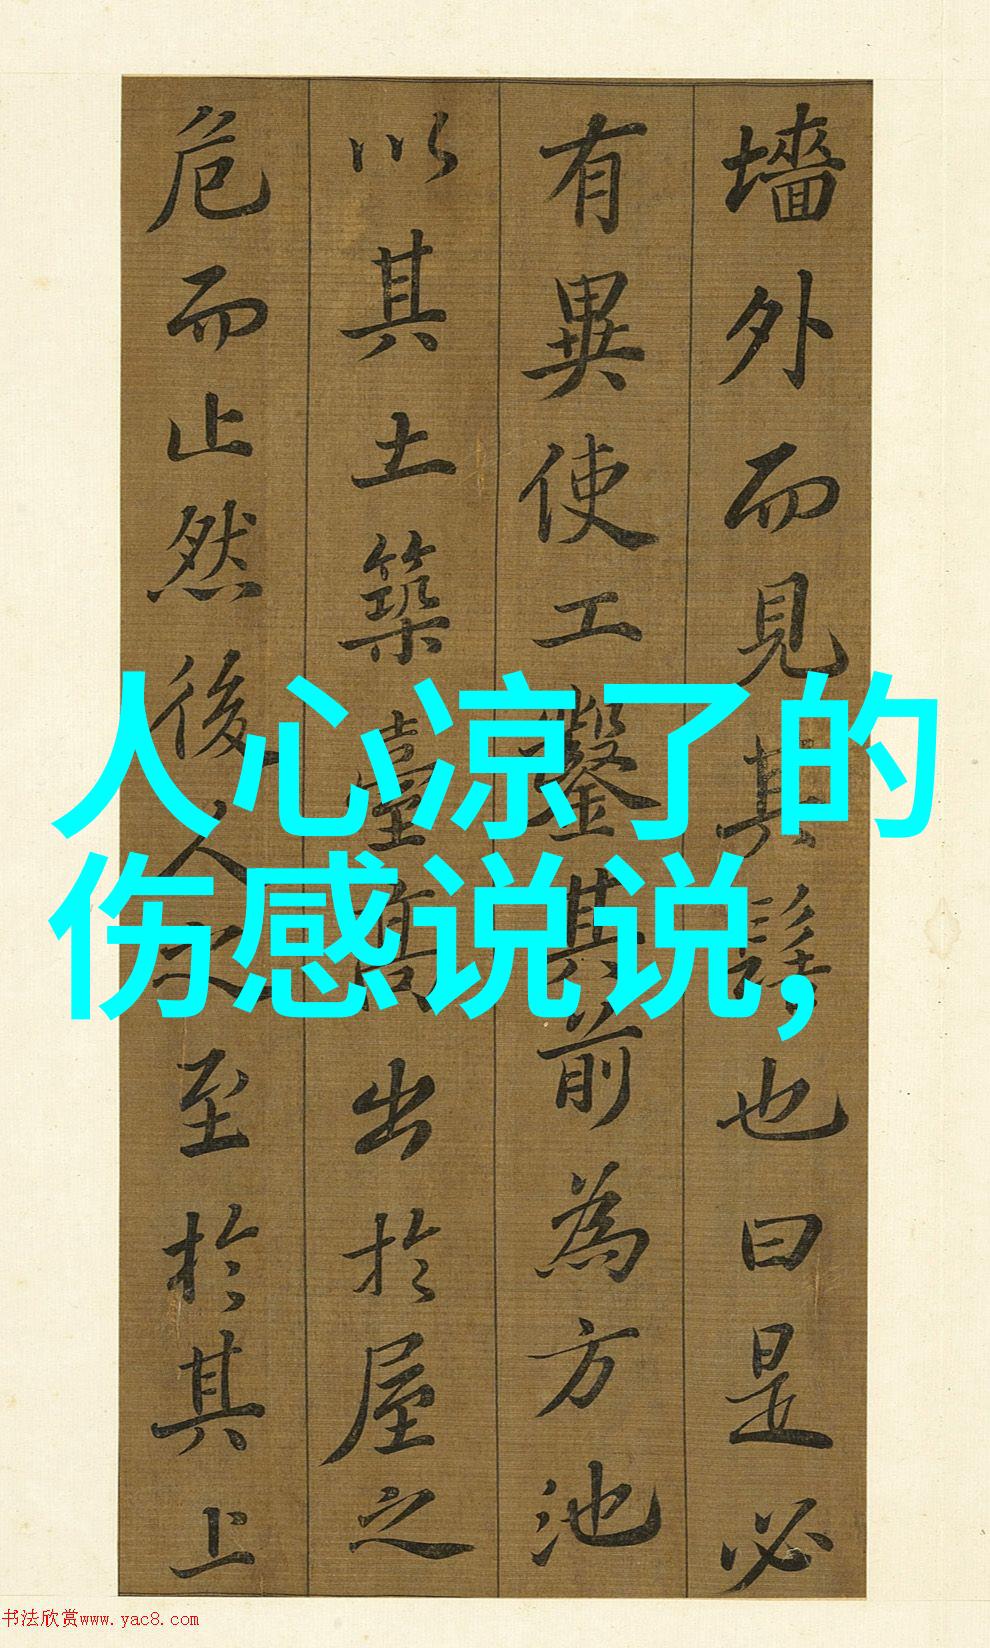 墻外而見其髻也曰是必
有異使工鑿其前為方池
以其土築臺高出於屋之
危而止然後人之至於其上
人心凉了的
伤感说说,
书法欣赏www.yac8.com